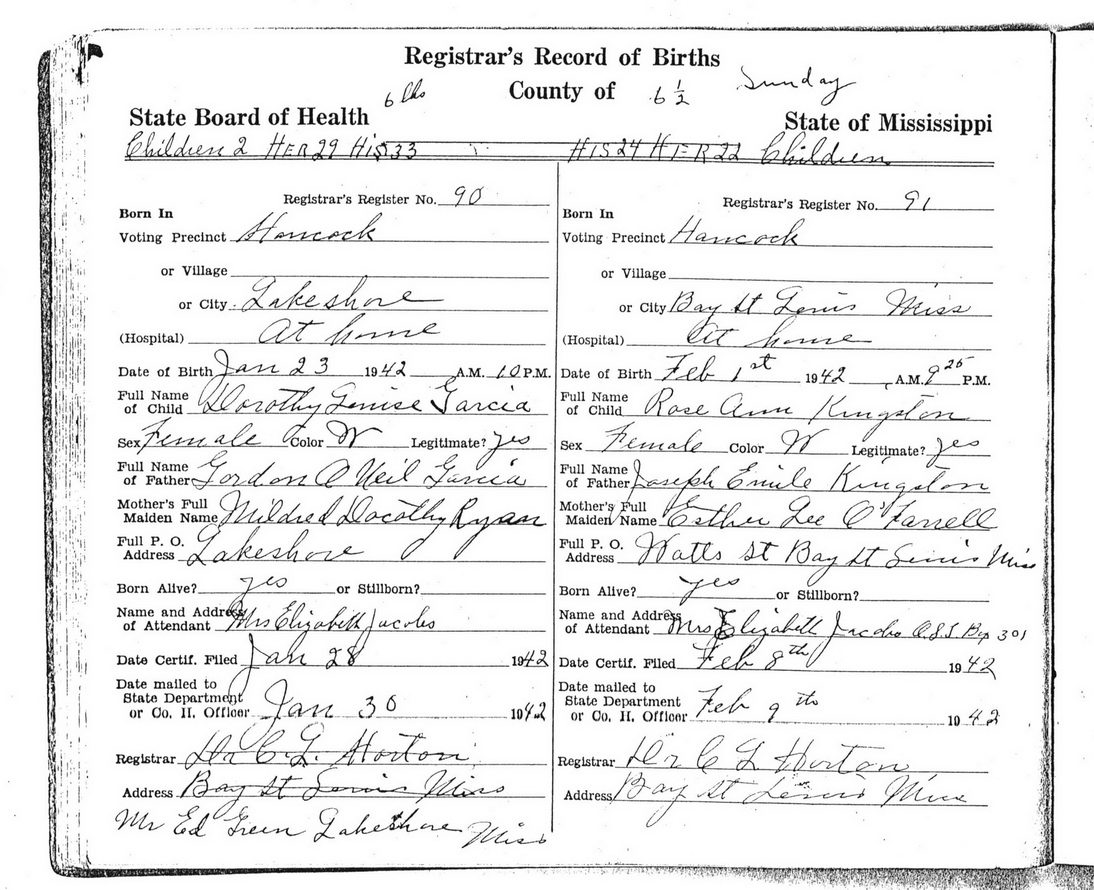 Registrar's Record of Births
County of
6 lbs
6 ½
Sunday
State Board of Health
State of Mississippi
Children 2 HER 29 HIS 33
HIS 24 HER 22 Children
Registrar's Register No. 90
Born In
Voting Precinct Hancock
or Village
or City Lakeshore
(Hospital) At home
Date of Birth Jan 23 1942 A.M. 10 P.M.
Full Name
of Child Dorothy Lenise Garcia
Sex Female Color W Legitimate? yes
Full Name
of Father Gordon O Neil Garcia
Mother's Full
Maiden Name Mildred Dorothy Ryan
Full P. O.
Address Lakeshore
Born Alive? yes or Stillborn?
Name and Address
of Attendant Mrs Elizabeth Jacobs
Date Certif. Filed Jan 28 1942
Date mailed to
State Department
or Co. H. Officer Jan 30 1942
Registrar Dr C. L. Horton
Address Bay St Louis Miss
Mr Ed Green Lakeshore Miss
Registrar's Register No. 91
Born In
Voting Precinct Hancock
or Village
or City Bay St Louis Miss
(Hospital) At home
Date of Birth Feb 1st 1942 A.M. 9 25 P.M.
Full Name
of Child Rose Ann Kingston
Sex Female Color W Legitimate? yes
Full Name
of Father Joseph Emile Kingston
Mother's Full
Maiden Name Esther Lee O'Farrell
Full P. O.
Address Watts St Bay St Louis Miss
Born Alive? yes or Stillborn?
Name and Address
of Attendant Mrs Elizabeth Jacobs Box 301
Date Certif. Filed Feb 8th 1942
Date mailed to
State Department
or Co. H. Officer Feb 9th 1942
Registrar Dr C L Horton
Address Bay St Louis Miss